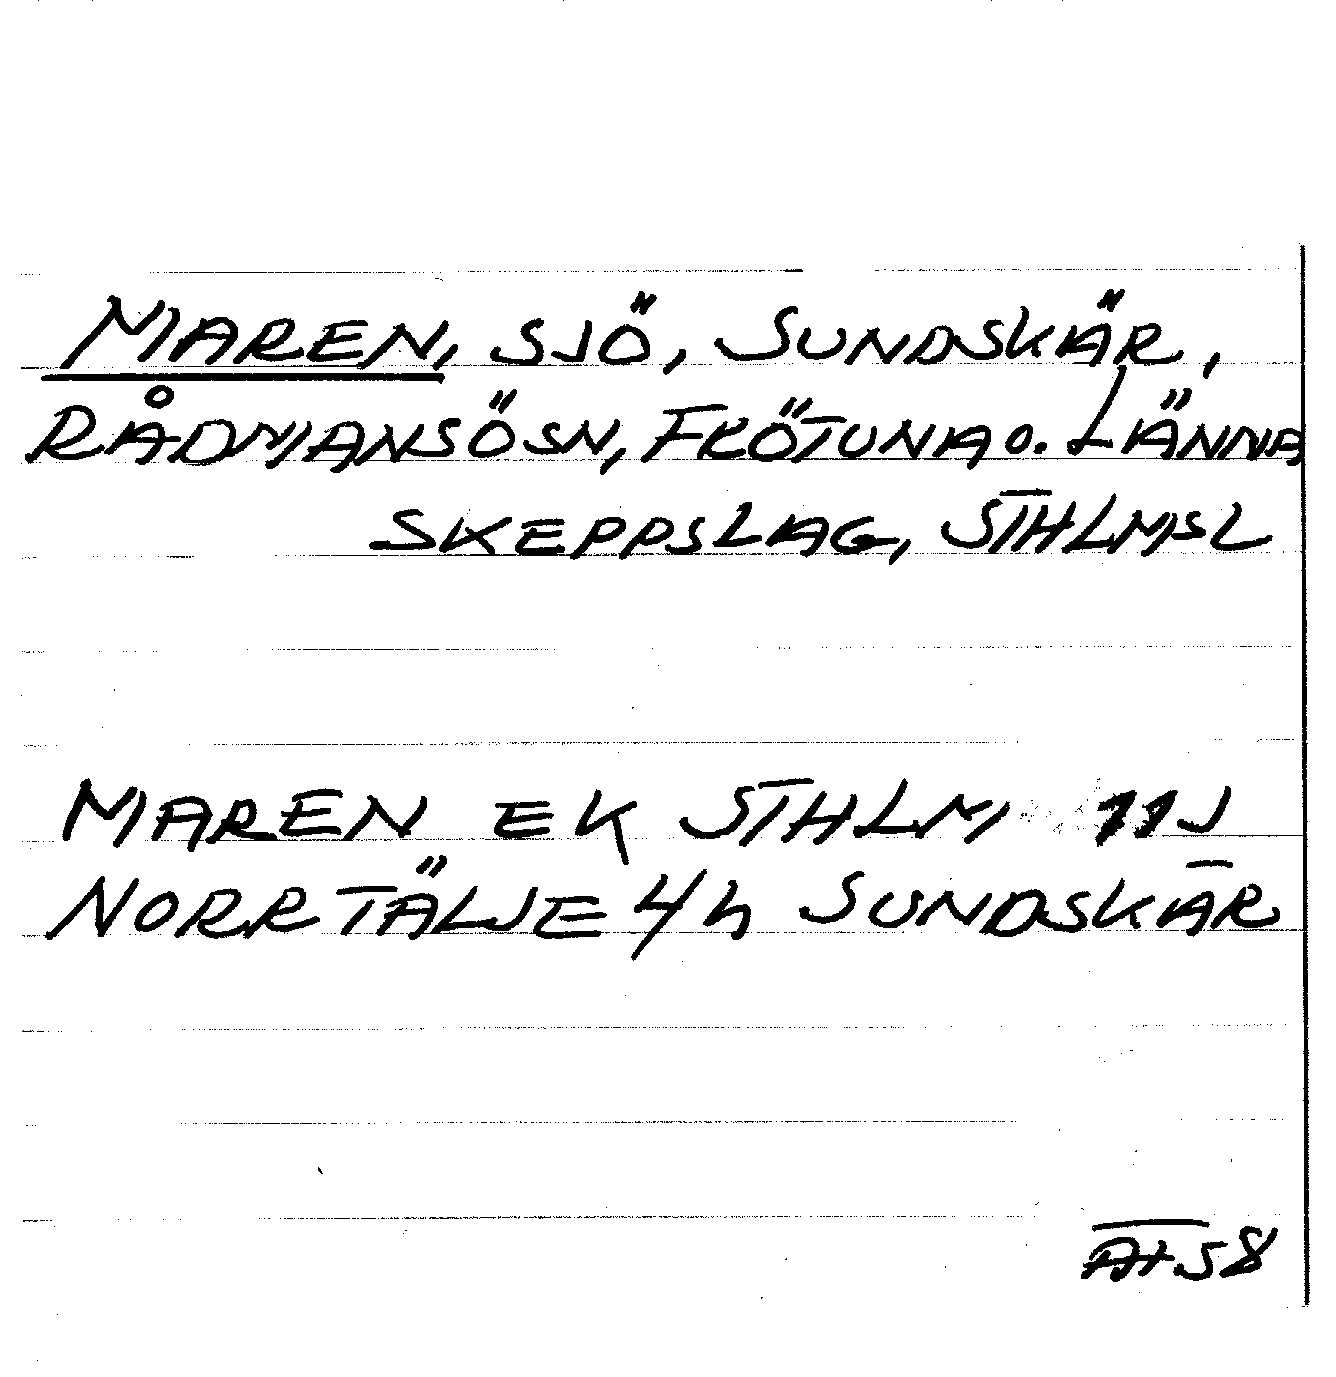 MAREN, SJÖ, SUNDSKÄR,
RÅDMANSÖSN, FRÖTUNA O. LÄNNA
SKEPPSLAG, STHLMSL
MAREN EK STHLM 11J
NORRTÄLJE 4h SUNDSKÄR
AT.58